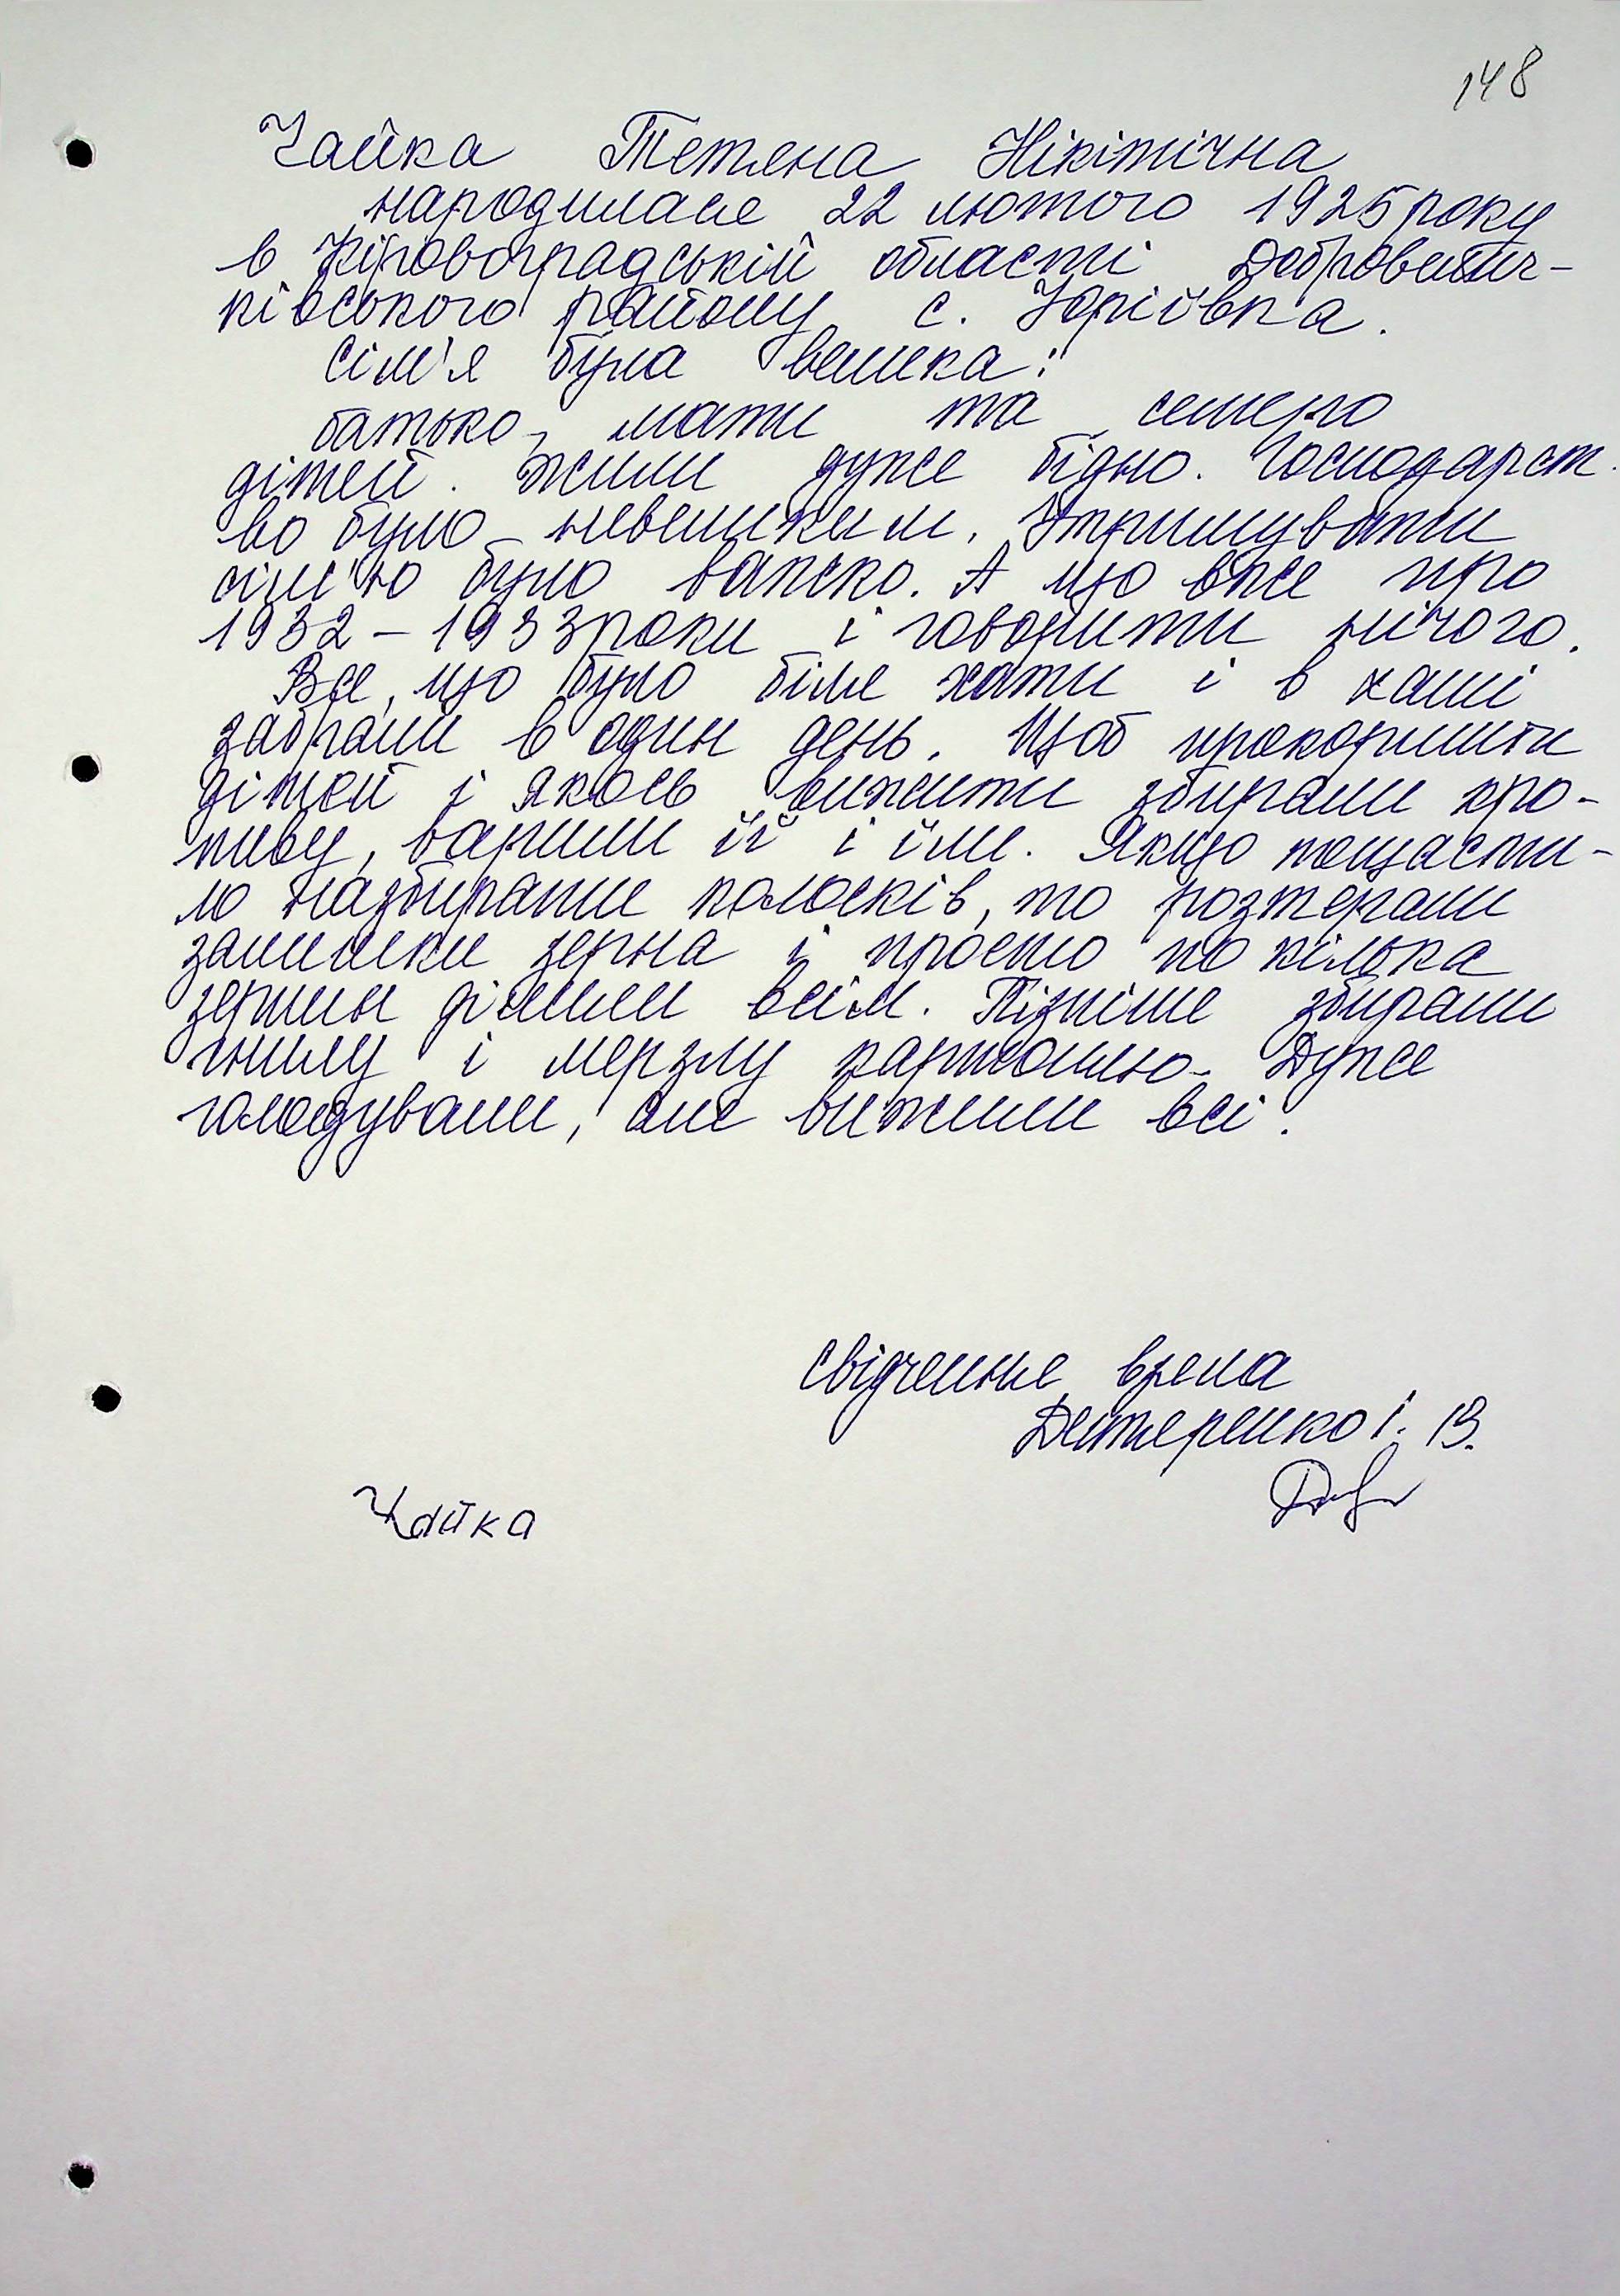 148
Чайка Тетяна Нікітічна
народилася 22 лютого 1925 року
в Кіровоградській області Добровелич-
ківського району с. Юріївка.
Сім'я була велика:
батько, мати та семеро
дітей. Жили дуже бідно. Господарст
во було невеликим. Утримувати
сім'ю було важко. А що вже про
1932 – 1933 роки і говорити нічого.
Все, що було біля хати і в хаті
забрали в один день. Щоб прокормити
дітей і якось вижити збирали кро-
пиву, варили її і їли. Якщо пощасти-
ло назбирати колосків, то розтерали
залишки зерна і просто по кілька
зернин ділили всім. Пізніше збирали
гнилу і мерзлу картоплю. Дуже
голодували, але вижили всі.
Свідчення врела
І. В.
Чайка